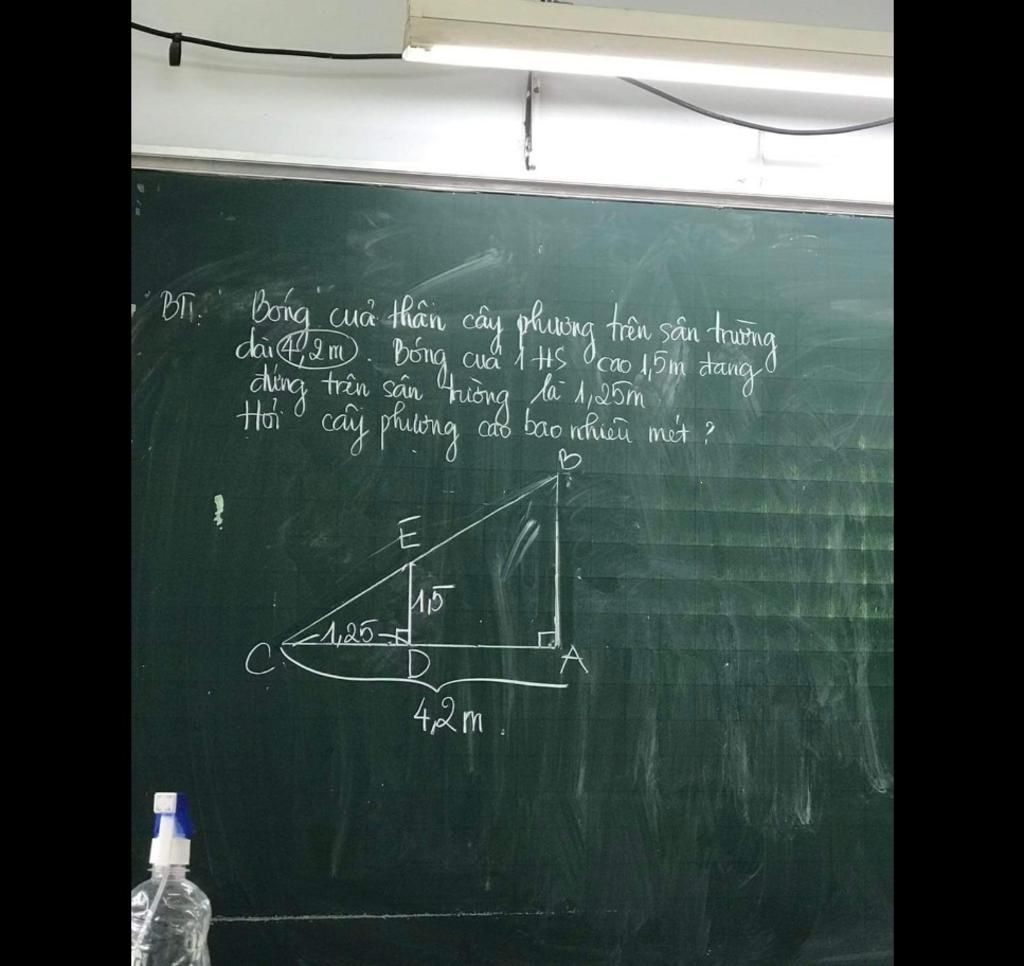 BT1. Bóng cuả thân cây phượng trên sân trường
dài 4,2m. Bóng cuả 1 HS cao 1,5m đang
đứng trên sân trường là 1,25m
Hỏi cây phượng cao bao nhiêu mét ?
B
E
1,5
1,25
C
D
A
4,2m.